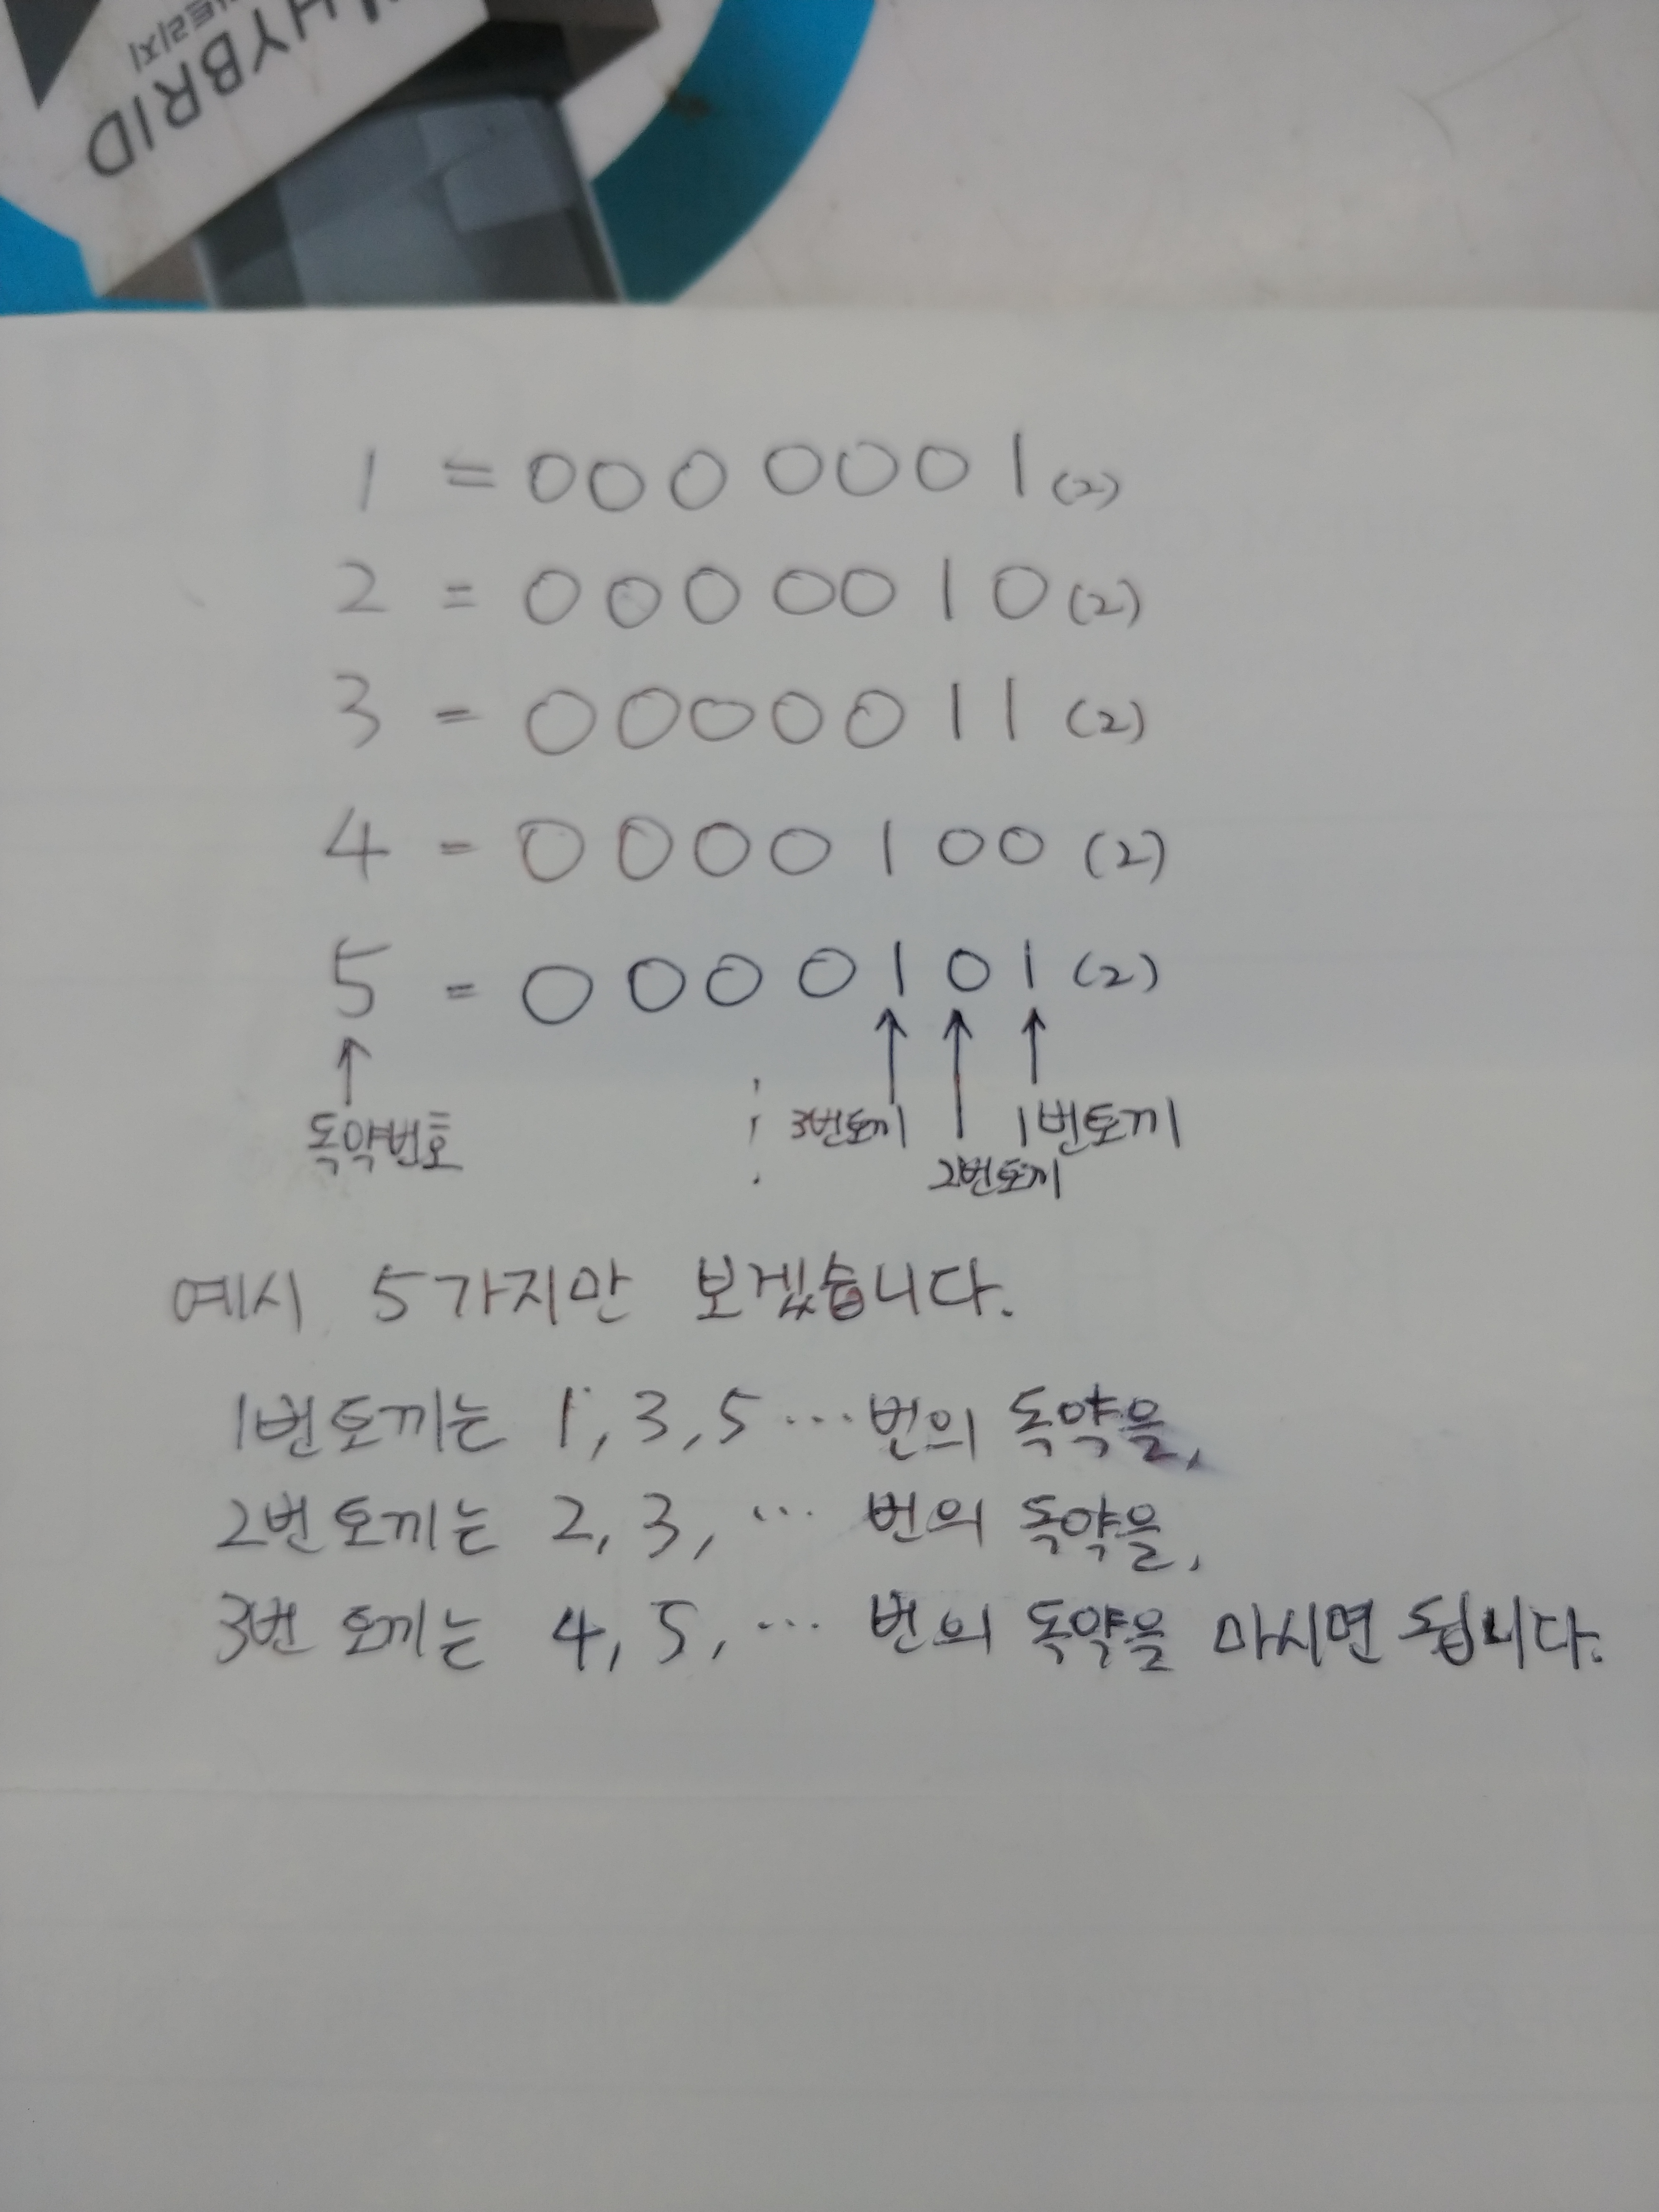 HYBRID
1 = 0000001(2)
2 = 0000010(2)
3 = 0000011(2)
4 = 0000100(2)
5 = 0000101(2)
독약번호
3번토끼
1번토끼
2번토끼
예시 5가지만 보겠습니다.
1번토끼는 1, 3, 5 … 번의 독약을,
2번토끼는 2, 3, … 번의 독약을,
3번 토끼는 4, 5, … 번의 독약을 마시면 됩니다.